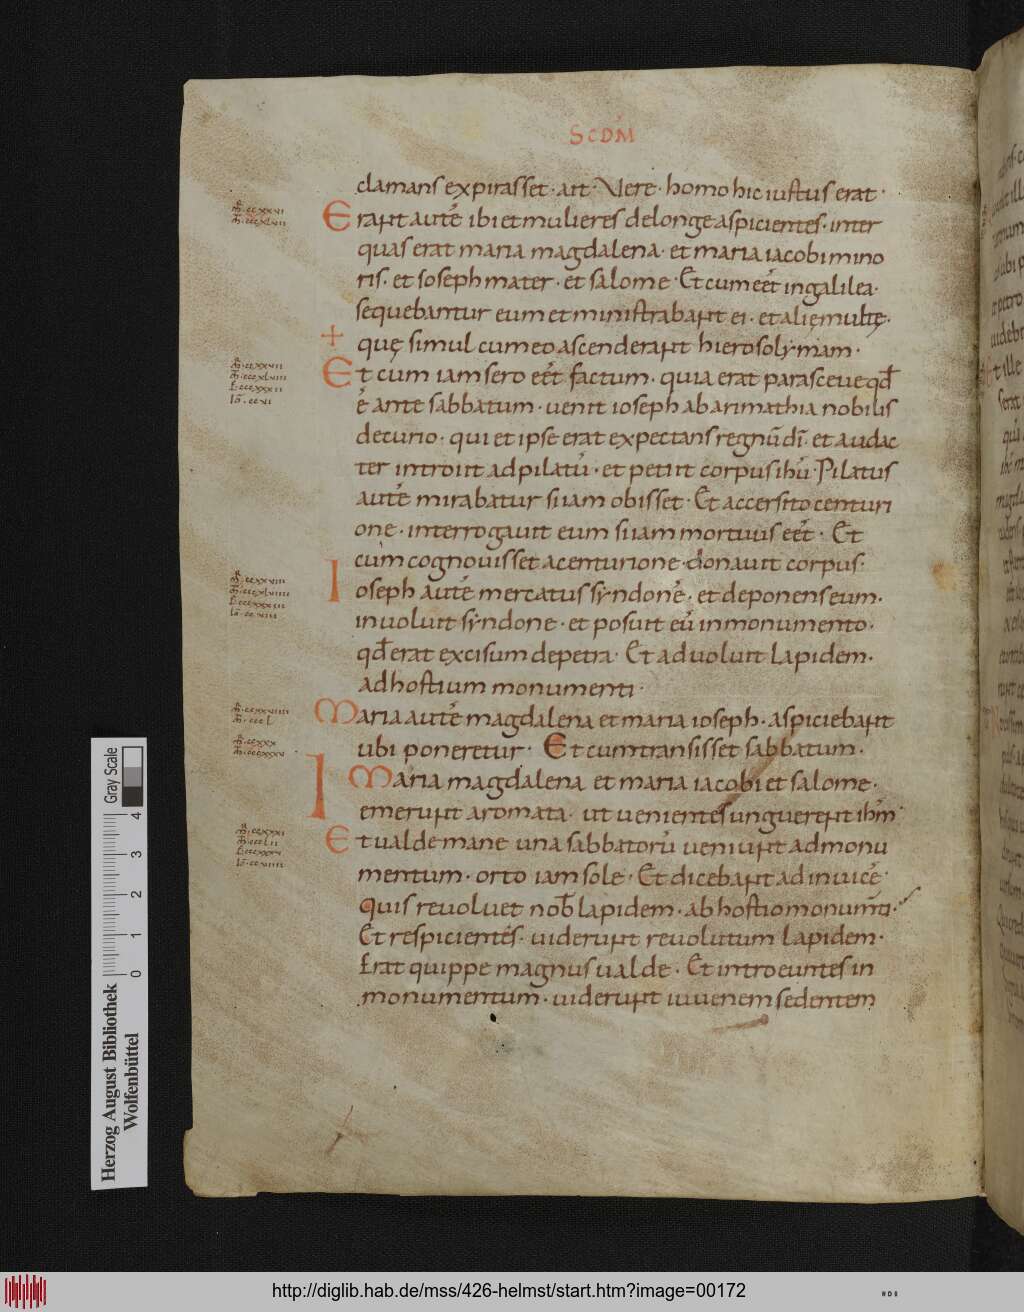 SCDM
clamans expirasset · ait · Vere · homo hic iustus erat ·
Erant autē ibi et mulieres de longe aspicientes · inter
quas erat maria magdalena · et maria iacobi mino
ris · et ioseph mater · et salome · Et cum eēt in galilea ·
sequebantur eum et ministrabant ei · et alię multę ·
quę simul cum eo ascenderant hierosolymam ·
Et cum iam sero eēt factum · quia erat parasceue qđ
ē ante sabbatum · uenit ioseph ab arimathia nobilis
decurio · qui et ipse erat expectans regnū dī · et audac
ter introiit ad pilatū · et petiit corpus ihū · Pilatus
autē mirabatur si iam obisset · Et accersito centuri
one · interrogauit eum si iam mortuus eēt · Et
cum cognouisset a centurione · donauit corpus ·
Ioseph autē mercatus syndonē · et deponens eum ·
inuoluit syndone · et posuit eū in monumento ·
qđ erat excisum de petra · Et aduoluit lapidem ·
ad hostium monumenti ·
Maria autē magdalena et maria ioseph · aspiciebant
ubi poneretur · Et cum transisset sabbatum ·
Maria magdalena et maria iacobi et salome ·
emerunt aromata · ut uenientes unguerent ihm̄ ·
Et ualde mane una sabbatorū ueniunt ad monu
mentum · orto iam sole · Et dicebant ad inuicē ·
quis reuoluet nob̄ lapidem · ab hostio monum̄ti ·
Et respicientes · uiderunt reuolutum lapidem ·
Erat quippe magnus ualde · Et introeuntes in
monumentum · uiderunt iuuenem sedentem
Gray Scale
0 1 2 3 4
Herzog August Bibliothek
Wolfenbüttel
http://diglib.hab.de/mss/426-helmst/start.htm?image=00172